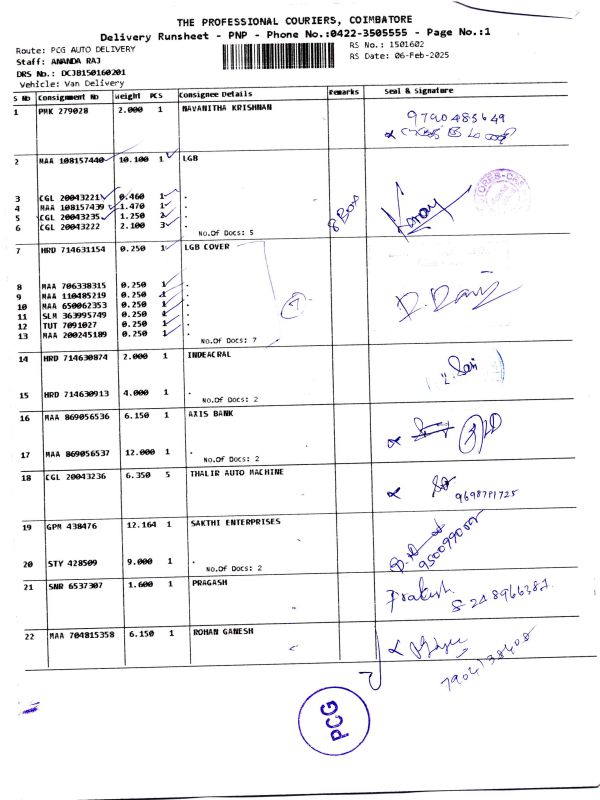 THE PROFESSIONAL COURIERS, COIMBATORE
Delivery Runsheet - PNP - Phone No.:0422-3505555 - Page No.:1
Route: PCG AUTO DELIVERY
RS No.: 1501602
Staff: ANANDA RAJ
RS Date: 06-Feb-2025
DRS No.: DCJB150160201
Vehicle: Van Delivery
S No Consignment No Weight PCS Consignee Details Remarks Seal & Signature
1 PMK 279028 2.000 1 NAVANITHA KRISHNAN
9790485649
2 MAA 108157440 10.100 1 LGB
3 CGL 20043221 0.460 1 .
4 MAA 108157439 1.470 1 .
5 CGL 20043235 1.250 2 .
6 CGL 20043222 2.100 3 .
No.Of Docs: 5
8 Box
7 HRD 714631154 0.250 1 LGB COVER
8 MAA 706338315 0.250 1 .
9 MAA 110485219 0.250 1 .
10 MAA 650062353 0.250 1 .
11 SLM 363995749 0.250 1 .
12 TUT 7091027 0.250 1 .
13 MAA 200245189 0.250 1 .
No.Of Docs: 7
7
14 HRD 714630874 2.000 1 INDEACRAL
15 HRD 714630913 4.000 1 .
No.Of Docs: 2
16 MAA 869056536 6.150 1 AXIS BANK
17 MAA 869056537 12.000 1 .
No.Of Docs: 2
18 CGL 20043236 6.350 5 THALIR AUTO MACHINE
19 GPM 438476 12.164 1 SAKTHI ENTERPRISES
20 STY 428509 9.000 1 .
No.Of Docs: 2
21 SNR 6537307 1.600 1 PRAGASH
Prakash
22 MAA 704815358 6.150 1 ROHAN GANESH
7904138408
PCG